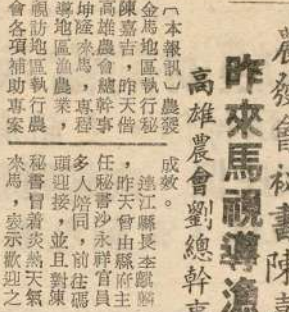 農發會祕書陳嘉
昨來馬視導漁
高雄農會劉總幹事
〔本報訊〕農發
金馬地區執行秘
陳嘉吉，昨天偕
高雄農會總幹事
坤隆來馬，專程
導地區漁農業，
視訪地區執行農
會各項補助專案
成效。
連江縣長李麒麟
，昨天曾由縣府主
任秘書沙永祥官員
多人陪同，前往碼
頭迎接，並且對陳
秘書冒着炎熱天氣
來馬，表示歡迎之